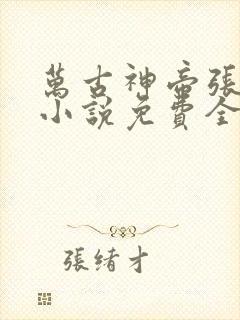 萬古神帝張
小說免費全
張緒才